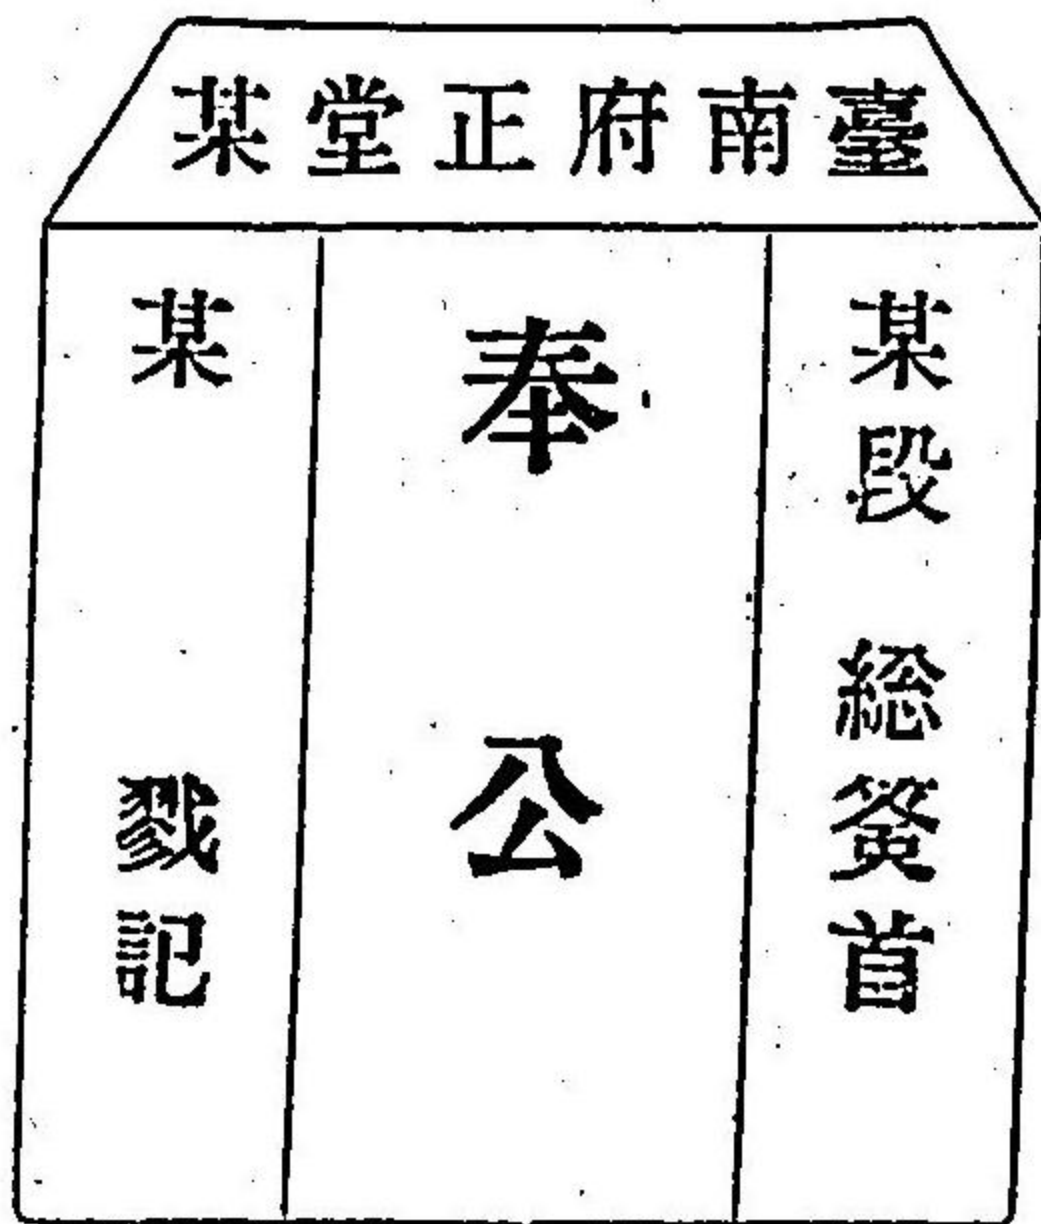 臺南府正堂某
某段 総簽首
奉公
某 戳記